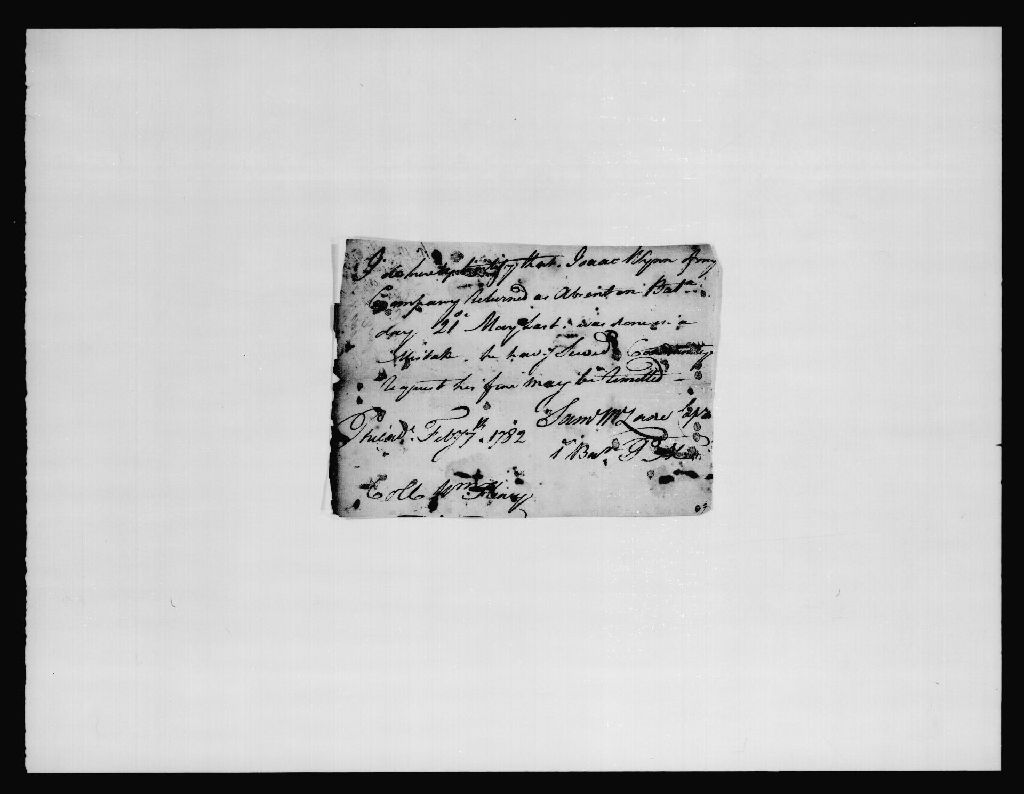 I do hereby Certify that Isaac Wynn of my
Company Returned as Absent on Batn
day 21st May Last. was done in a
Mistake. he havg Served
Request his fine may be Remitted
Philada. Feby 7th. 1782 Saml McLane Capt
1 Batn P
Collo Wm Henry